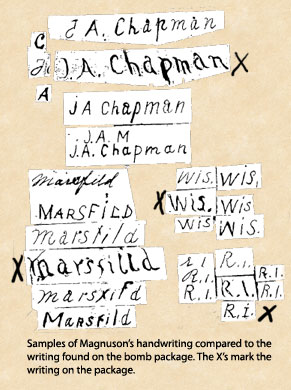 J. A. Chapman
C
J. J.A. Chapman X
A
JA Chapman
J.A. M
J.A. Chapman
Marsfild
MARSFilD
Marsfild
X Marsfilld
marsxifd
MARSfild
Wis. Wis.
X Wis. Wis
Wis Wis.
R.I. R.I.
R.I. R.I.
R.I. R.I. R.I.
R.I. X
Samples of Magnuson's handwriting compared to the
writing found on the bomb package. The X's mark the
writing on the package.